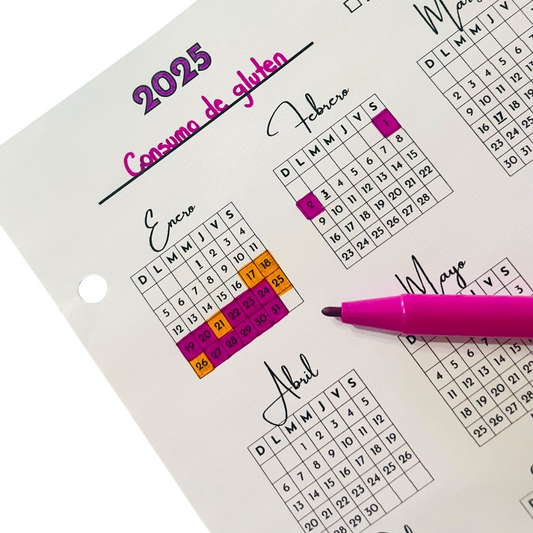 2025
Consumo de gluten
Enero
D L M M J V S
1 2 3 4
5 6 7 8 9 10 11
12 13 14 15 16 17 18
19 20 21 22 23 24 25
26 27 28 29 30 31
Febrero
D L M M J V S
1
2 3 4 5 6 7 8
9 10 11 12 13 14 15
16 17 18 19 20 21 22
23 24 25 26 27 28
D L M M J V S
2 3 4 5 6
9 10 11 12 13
16 17 18 19
23 24 25
30 31
Abril
D L M M J V S
1 2 3 4 5
6 7 8 9 10 11 12
13 14 15 16 17 18 19
20 21 22 23 24 25 26
28 29 30
Mayo
S
3
4 5 6 7 8
11 12 13 14
18 19 20 21
25 26 27 28